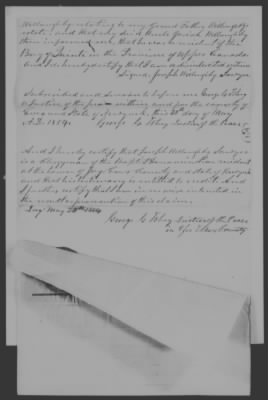 Willoughby relating to my Grand Father Willoughbys
estate, and that my said Uncle Josiah Willoughby
then informed me that he was a resident of the
Bay of Quinte in the Province of Upper Canada
And I do hereby certify that I am
Signed Joseph Willoughby Sawyer
Subscribed and Sworn to before me George C. Toby
a Justice of the peace within and for the County of
Essex and State of New York, this 25th day of May
A.D. 1854. George C. Toby Justice of the Peace
And I hereby certify that Joseph Willoughby Sawyer
is a Clergyman of the Baptist
at the town of Jay Essex County and State of New York
and that his testimony is entitled to credit. And
I further certify that I am in no wise interested in
the nor the prosecution of this claim.
Jay May 25th 1854
George C Toby Justice of the Peace
in & for Essex County